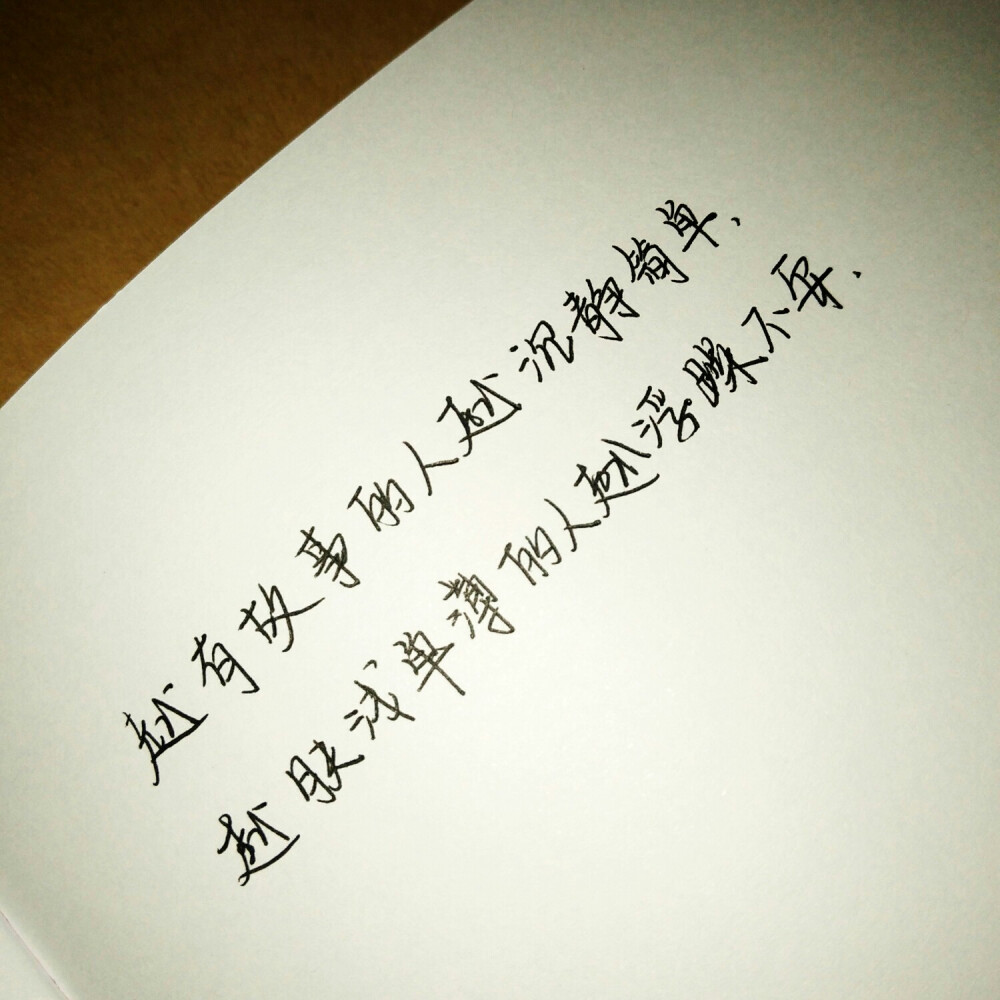 越有故事的人越沉静简单、
越肤浅单薄的人越浮躁不安.